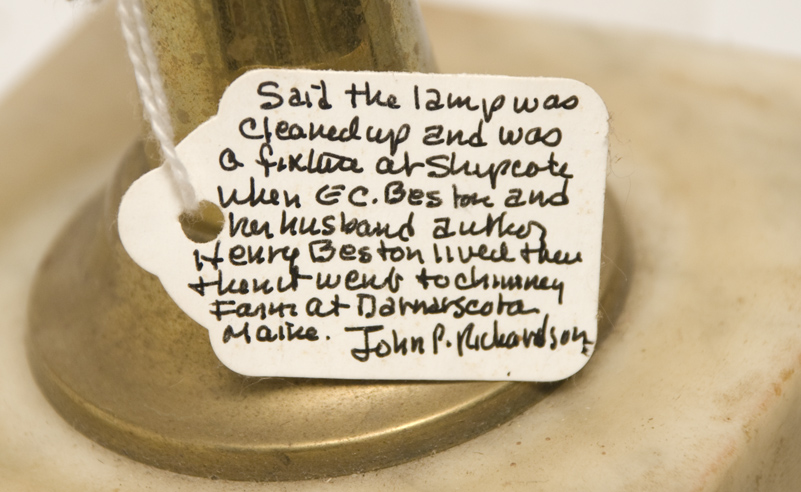 Said the lamp was
cleaned up and was
a fixture at Shipcote
when E C. Beston and
her husband author
Henry Beston lived there
then it went to chimney
Farm at Damarscota
Maine. John P. Richardson